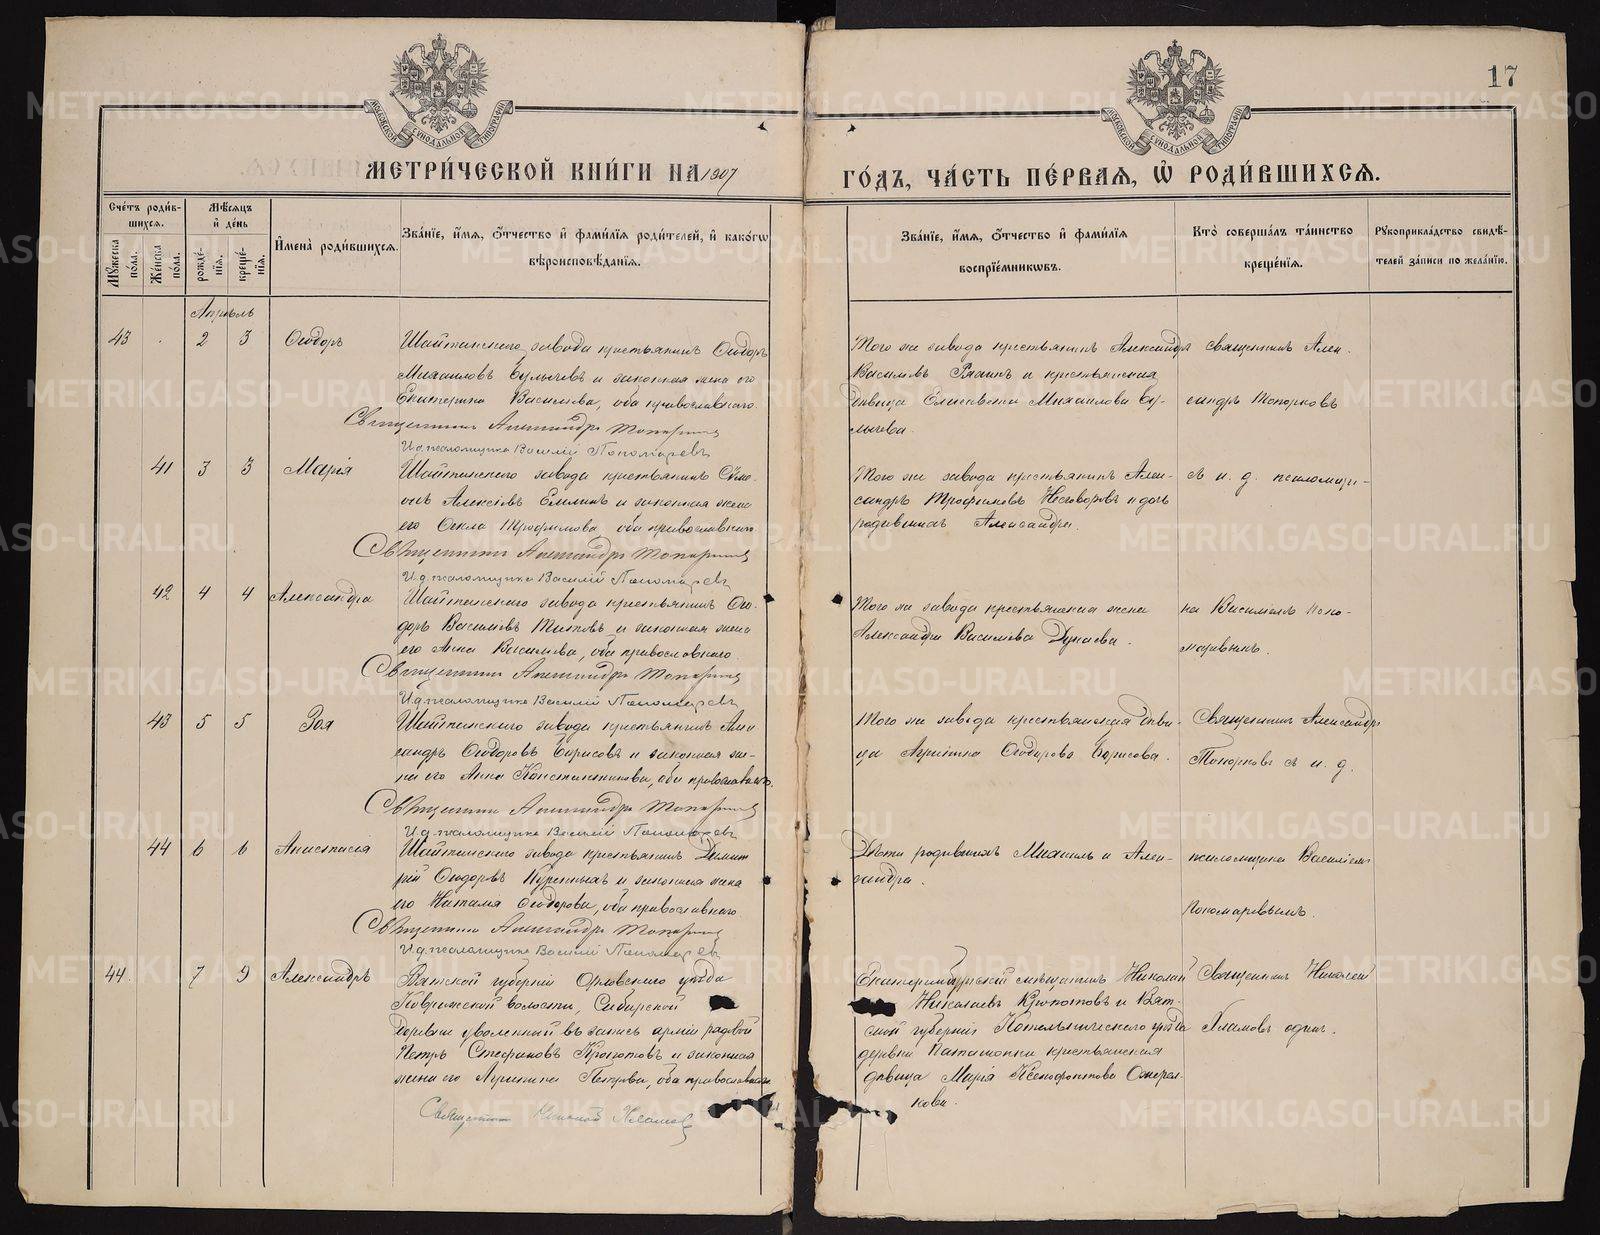 17
МЕТРИ́ЧЕСКОЙ КНИ́ГИ НА 1907
ГО́ДЪ, ЧА́СТЬ ПЕ́РВАѦ, Ѽ РОДИ́ВШИХСѦ.
Сче́тъ роди́в-
шихся.
Мѣ́сяцъ
и҆ де́нь
Мꙋжеска
по́ла.
Же́нска
по́ла.
рожде́-
нїя.
креще́-
нїя.
И҆мена̀ роди́вшихся.
Зва́нїе, и҆́мя, ѻ҆́тчество и҆ фами́лїя роди́телей, и҆ како́гѡ
вѣроисповѣ́данїя.
Зва́нїе, и҆́мя, ѻ҆́тчество и҆ фами́лїя
воспрїе́мникѡвъ.
Кто̀ соверша́лъ та́инство
креще́нїя.
Рꙋкоприкла́дство свидѣ́-
телей за́писи по жела́нїю.
Апрѣль
43 2 3 Ѳеодоръ
Шайтанскаго завода крестьянинъ Ѳеодоръ
Михаиловъ Булычевъ и законная жена его
Екатерина Васильева, оба православнаго.
Священникъ Александръ Топорковъ
И.д. псаломщика Василій Пономаревъ
Того же завода крестьянинъ Александръ
Васильевъ и крестьянская
дѣвица Елисавета Михаилова Бу-
лычева.
Священникъ Алек-
сандръ Топорковъ
41 3 3 Марія
Шайтанскаго завода крестьянинъ Сѵме-
онъ Алексѣевъ и законная жена
его Ѳекла Трофимова оба православнаго
Священникъ Александръ Топорковъ
И.д. псаломщика Василій Пономаревъ
Того же завода крестьянинъ Алек-
сандръ Трофимовъ и дочь
родившихъ Александра.
съ и. д. псаломщи-
42 4 4 Александра
Шайтанскаго завода крестьянинъ Ѳео-
доръ Васильевъ Титовъ и законная жена
его Анна Васильева, оба православнаго
Священникъ Александръ Топорковъ
И.д. псаломщика Василій Пономаревъ
Того же завода крестьянская жена
Александра Васильева Дунаева.
ка Василіемъ Поно-
маревымъ.
43 5 5 Зоя
Шайтанскаго завода крестьянинъ Алек-
сандръ Ѳеодоровъ Борисовъ и законная же-
на его Анна Константинова, оба православнаго.
Священникъ Александръ Топорковъ
И.д. псаломщика Василій Пономаревъ
Того же завода крестьянская дѣви-
ца Агриппина Ѳеодорова Борисова.
Священникъ Александръ
Топорковъ съ и. д.
44 6 6 Анастасія
Шайтанскаго завода крестьянинъ Димит-
рій Ѳеодоровъ и законная жена
его Наталія Ѳеодорова, оба православнаго
Священникъ Александръ Топорковъ
И.д. псаломщика Василій Пономаревъ
Дѣти родившихъ Михаилъ и Алек-
сандра.
псаломщика Василіемъ
Пономаревымъ.
44. 7 9 Александръ
Вятской губерніи Орловскаго уѣзда
волости, Сибирской
деревни уволенный въ запасъ арміи рядовой
Петръ Стефановъ Кропотовъ и законная
жена его Агриппина Петрова, оба православнаго
Священникъ Николай
Екатеринбургскій мѣщанинъ Николай
Николаевъ Кропотовъ и Вят-
ской губерніи Котельническаго уѣзда
деревни крестьянская
дѣвица Марія Ксенофонтова Ожгел-
кова.
Священникъ Николай
одинъ.
METRIKI.GASO-URAL.RU